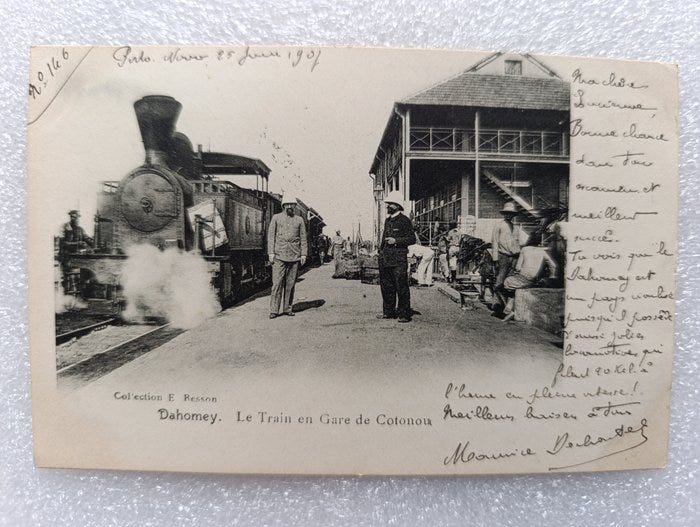 No. 146
Porto Novo 25 Juin 1907
Ma chère
Lucienne,
Bonne chance
dans ton
examen et
meilleur
succès.
Tu vois que le
Dahomey est
un pays civilisé
puisqu'il possède
d'aussi jolies
locomotives qui
filent 20 kil. à
l'heure en pleine vitesse!
Meilleurs baisers à tous
Maurice
Collection E. Besson
Dahomey. Le Train en Gare de Cotonou